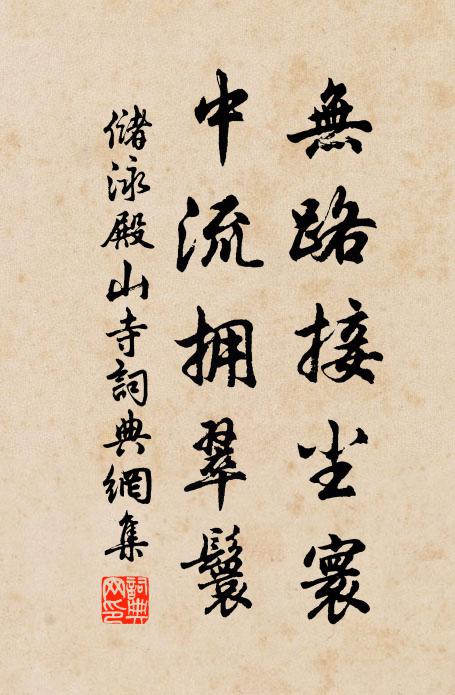 無路接尘寰
中流拥翠鬟
儲泳殿山寺詞典網集
詞典网印